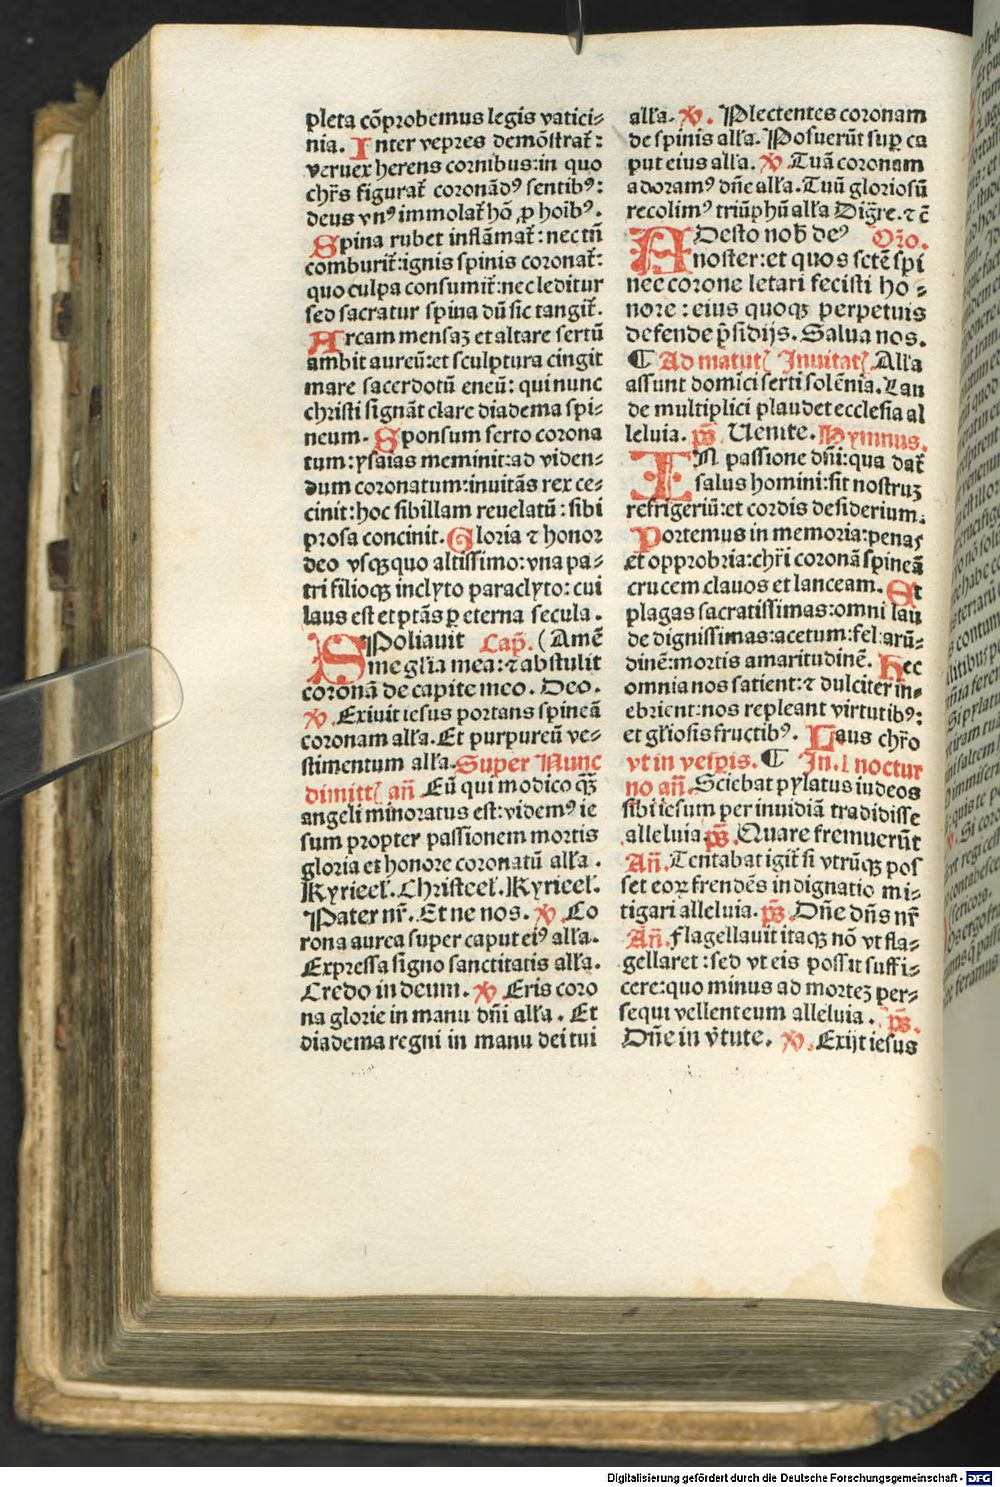 pleta cõprobemus legis vatici-
nia. Inter vepres demõstrat̃:
veruex herens cornibus: in quo
chr̃s figurat̃ coronãdꝰ sentibꝰ:
deus vnꝰ immolat̃ hõ ꝓ hoĩbꝰ.
Spina rubet inflãmat̃: nec tñ
comburit̃: ignis spinis coronat̃:
quo culpa consumit̃: nec leditur
sed sacratur spina dũ sic tangit̃.
Arcam mensaꝫ et altare sertũ
ambit aureũ: et sculptura cingit
mare sacerdotũ eneũ: qui nunc
christi signãt clare diadema spi-
neum. Sponsum serto corona
tum: ysaias meminit: ad viden-
dum coronatum: inuitãs rex ce-
cinit: hoc sibillam reuelatũ: sibi
prosa concinit. Gloria ⁊ honor
deo vsqꝫ quo altissimo: vna pa-
tri filioqꝫ inclyto paraclyto: cui
laus est et ptãs ꝑ eterna secula.
SPoliauit Cap̃. (Amẽ
me gl̃ia mea: ⁊ abstulit
coronã de capite meo. Deo.
℣. Exiuit iesus portans spineã
coronam alľa. Et purpureũ ve-
stimentum alľa. Super Nunc
dimitt̃ añ. Eũ qui modico qꝫ̃
angeli minoratus est: videmꝰ ie
sum propter passionem mortis
gloria et honore coronatũ alľa.
Kyrieel̃. Christeel̃. Kyrieel̃.
Pater nr̃. Et ne nos. ℣. Co
rona aurea super caput eiꝰ alľa.
Expressa signo sanctitatis alľa.
Credo in deum. ℣. Eris coro
na glorie in manu dñi alľa. Et
diadema regni in manu dei tui
alľa. ℣. Plectentes coronam
de spinis alľa. Posuerũt suꝑ ca
put eius alľa. ℣. Tuã coronam
adoramꝰ dñe alľa. Tuũ gloriosũ
recolimꝰ triũphũ alľa Dig̃re. ⁊ c̃
ADesto nob̃ deꝰ Or̃o.
noster: et quos sctẽ spi
nee corone letari fecisti ho-
nore: eius quoqꝫ perpetuis
defende p̃sidijs. Salua nos.
¶ Ad matut̃ Inuitat̃. Alľa
assunt domĩci serti solẽnia. Lau
de multiplici plaudet ecclesia al
leluia. p̃s. Uenite. Hymnus.
IN passione dñi: qua dat̃
salus homini: sit nostruꝫ
refrigeriũ: et cordis desiderium.
Portemus in memoria: penas
et opprobria: chr̃i coronã spineã
crucem clauos et lanceam. Et
plagas sacratissimas: omni lau
de dignissimas: acetum: fel: arũ-
dinẽ: mortis amaritudinẽ. Hec
omnia nos satient: ⁊ dulciter in-
ebrient: nos repleant virtutibꝰ:
et gľiosis fructibꝰ. Laus chr̃o
vt in vesp̃is. ¶ In .I noctur
no añ. Sciebat pylatus iudeos
sibi iesum per inuidiã tradidisse
alleluia. p̃s. Quare fremuerũt
Añ. Tentabat igit̃ si vtrũqꝫ pos
set eoꝝ frendẽs indignatio mi-
tigari alleluia. p̃s. Dñe dñs nr̃
Añ. Flagellauit itaqꝫ nõ vt fla-
gellaret: sed vt eis possit suffi-
cere: quo minus ad morteꝫ per-
sequi vellent eum alleluia. p̃s.
Dñe in ṽtute. ℣. Exijt iesus
Digitalisierung gefördert durch die Deutsche Forschungsgemeinschaft - DFG